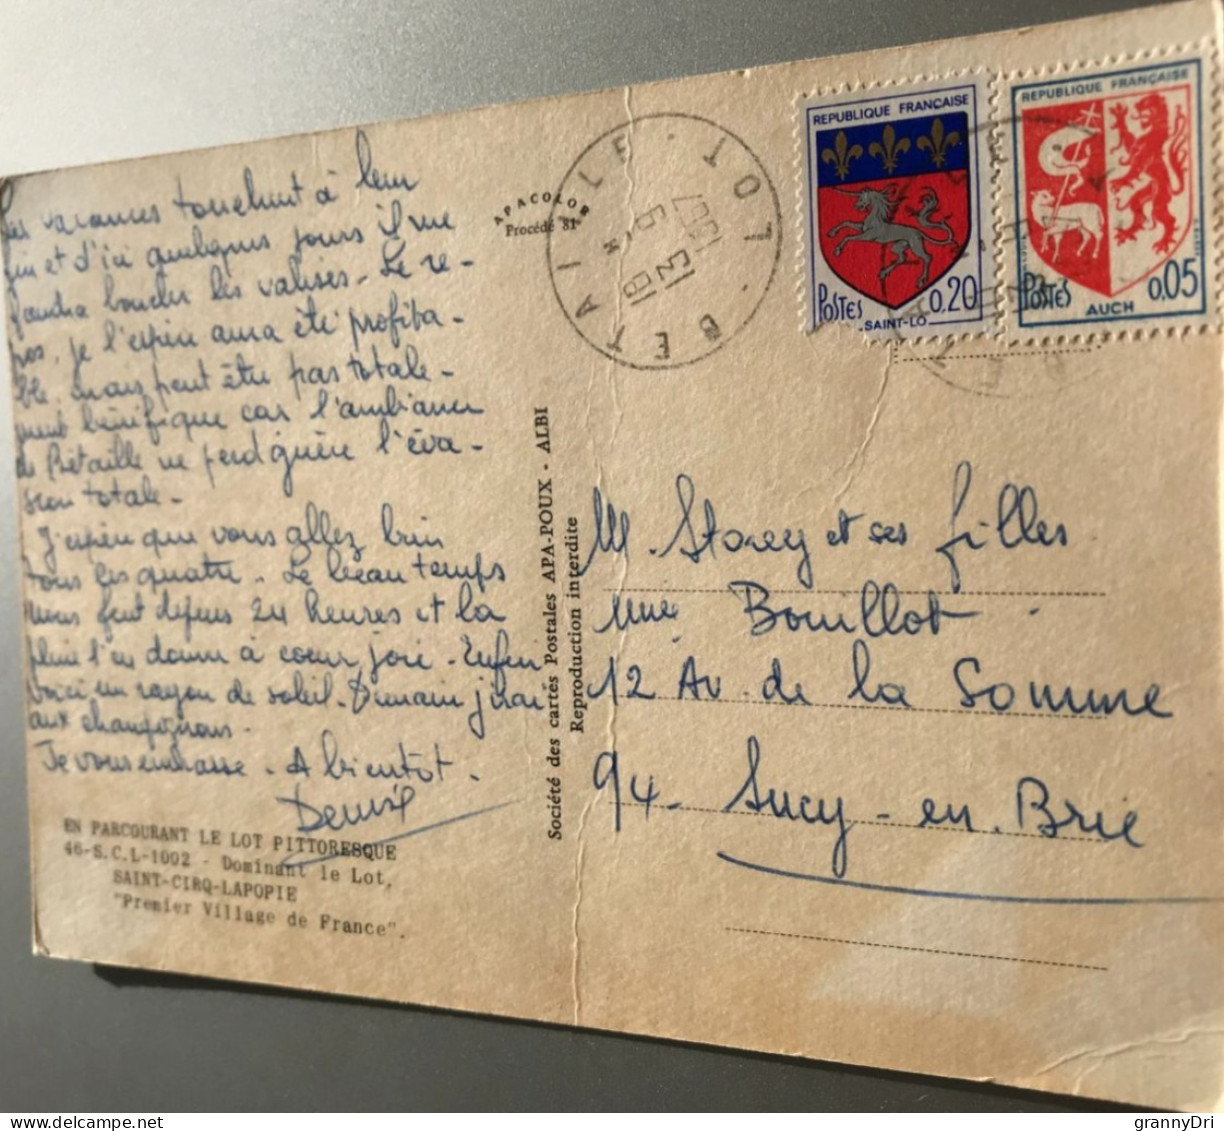 Les vacances touchent à leur
fin et d'ici quelques jours il me
faudra boucler les valises. Le re-
pos, je l'espère aura été profita-
ble, mais peut être pas totale-
ment bénéfique car l'ambiance
de Bétaille ne perd guère l'éva-
sion totale -
J'espère que vous allez bien
tous les quatre. Le beau temps
nous fuit depuis 24 heures et la
pluie s'en donne à coeur joie. Enfin
voici un rayon de soleil. Demain j'irai
aux champignons.
Je vous embrasse. A bientôt.
Denise
EN PARCOURANT LE LOT PITTORESQUE
46-S.C.L-1002 - Dominant le Lot,
SAINT-CIRQ-LAPOPIE
"Premier Village de France".
APACOLOR
Procédé "81"
Société des cartes Postales APA-POUX - ALBI
Reproduction interdite
BETAILLE . LOT .
REPUBLIQUE FRANÇAISE
POSTES 0,20
SAINT-LO
REPUBLIQUE FRANÇAISE
POSTES 0,05
AUCH
M. Storey et ses filles
Mme Bouillot
12 Av. de la Somme
94 - Sucy-en-Brie
grannyDri
delcampe.net